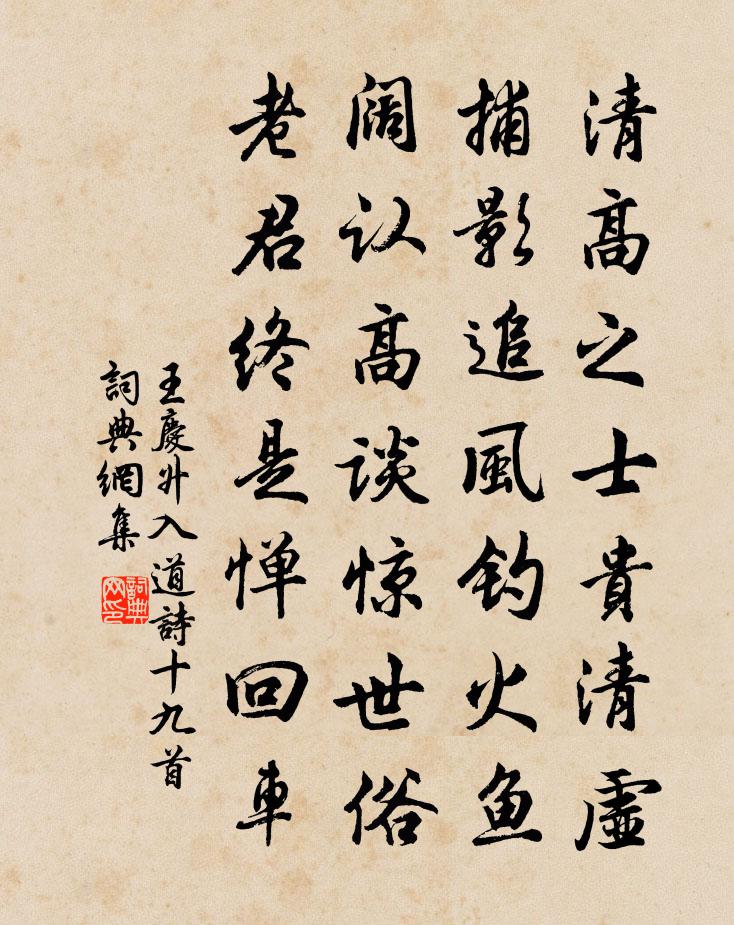 清高之士貴清虛
捕影追風钓火鱼
阔认高谈惊世俗
老君终是惮回車
王慶升入道詩十九首
詞典網集
詞典
网印